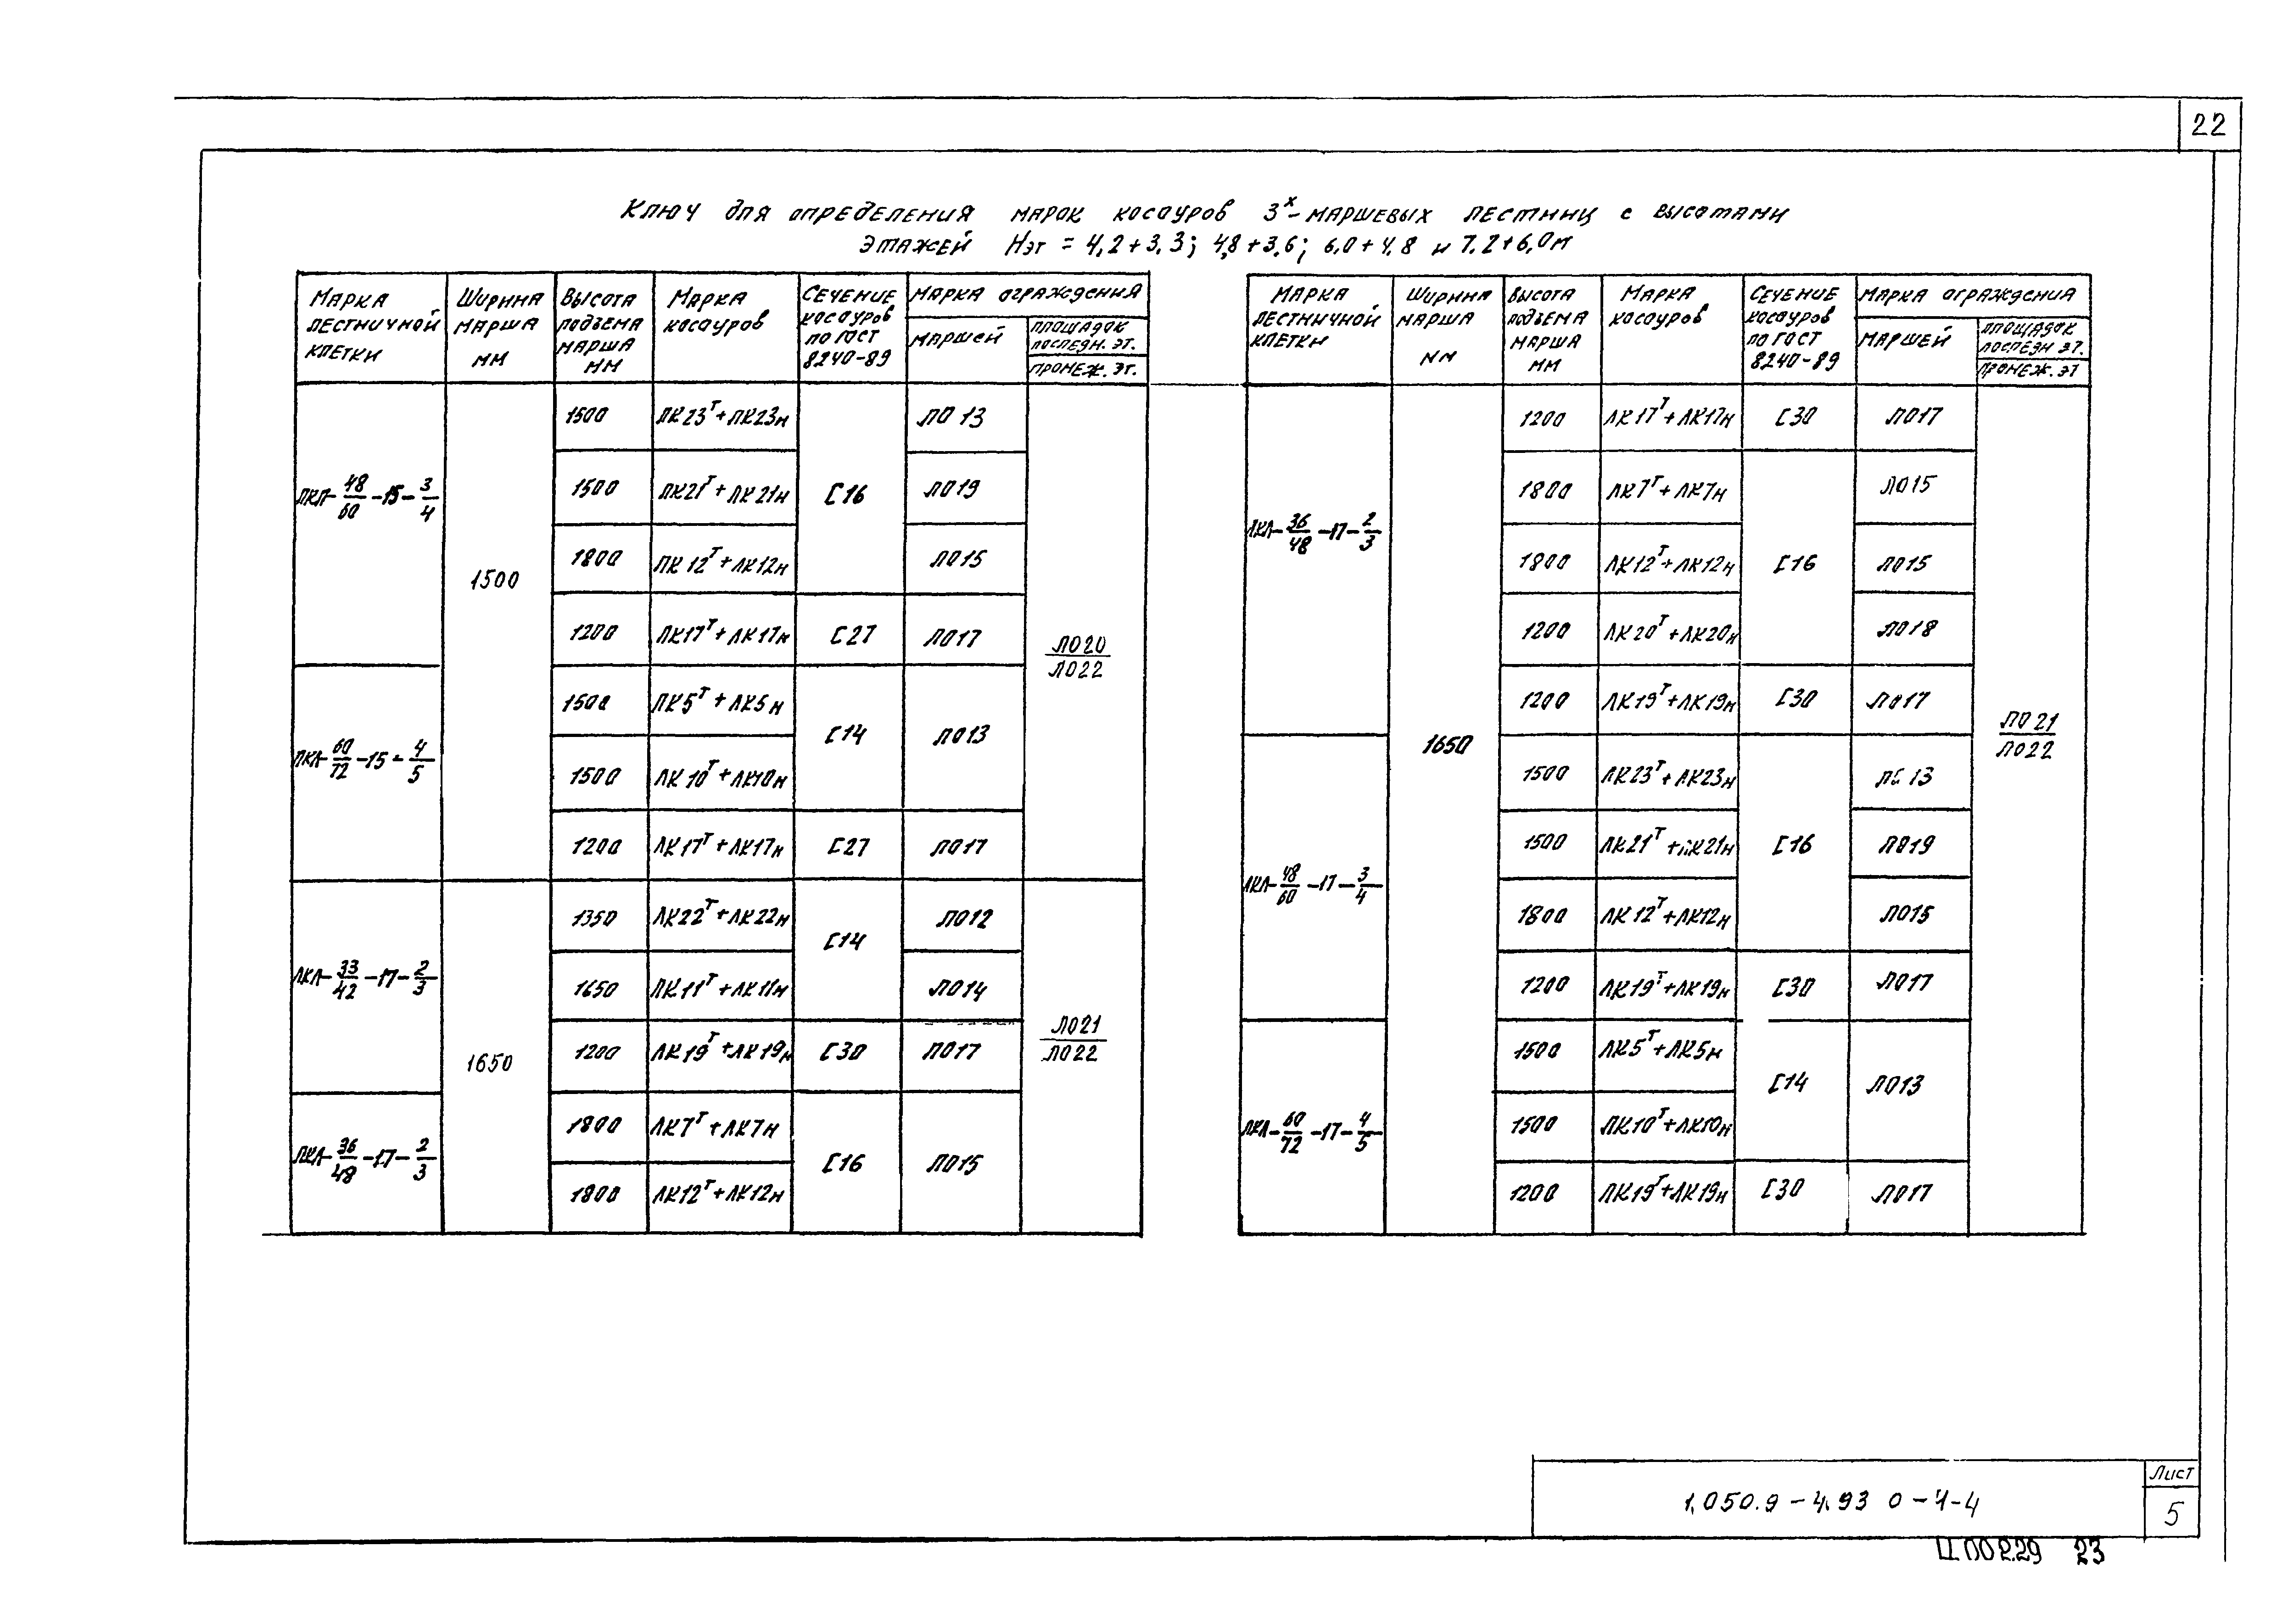 22
Ключ для определения марок косауров 3х-маршевых лестниц с высотами
этажей Нэт = 4,2+3,3; 4,8+3,6; 6,0+4,8 и 7,2+6,0м
Марка лестничной клетки | Ширина марша мм | Высота подъема марша мм | Марка косауров | Сечение косауров по ГОСТ 8240-89 | Марка ограждения
маршей | площадок последн. эт. / промеж. эт.
ЛКЛ-48/60-15-3/4 | 1500 | 1500 | ЛК23т+ЛК23н | [16 | ЛО13 | ЛО20/ЛО22
1500 | ЛК21т+ЛК21н | ЛО19
1800 | ЛК12т+ЛК12н | ЛО15
1200 | ЛК17т+ЛК17н | [27 | ЛО17
ЛКЛ-60/72-15-4/5 | 1500 | ЛК5т+ЛК5н | [14 | ЛО13
1500 | ЛК10т+ЛК10н
1200 | ЛК17т+ЛК17н | [27 | ЛО17
ЛКЛ-33/42-17-2/3 | 1650 | 1350 | ЛК22т+ЛК22н | [14 | ЛО12 | ЛО21/ЛО22
1650 | ЛК11т+ЛК11н | ЛО14
1200 | ЛК19т+ЛК19н | [30 | ЛО17
ЛКЛ-36/48-17-2/3 | 1800 | ЛК7т+ЛК7н | [16 | ЛО15
1800 | ЛК12т+ЛК12н
Марка лестничной клетки | Ширина марша мм | Высота подъема марша мм | Марка косауров | Сечение косауров по ГОСТ 8240-89 | Марка ограждения
маршей | площадок последн эт. / промеж. эт
ЛКЛ-36/48-17-2/3 | 1650 | 1200 | ЛК17т+ЛК17н | [30 | ЛО17 | ЛО21/ЛО22
1800 | ЛК7т+ЛК7н | [16 | ЛО15
1800 | ЛК12т+ЛК12н | ЛО15
1200 | ЛК20т+ЛК20н | ЛО18
1200 | ЛК19т+ЛК19н | [30 | ЛО17
ЛКЛ-48/60-17-3/4 | 1500 | ЛК23т+ЛК23н | [16 | ЛО13
1500 | ЛК21т+ЛК21н | ЛО19
1800 | ЛК12т+ЛК12н | ЛО15
1200 | ЛК19т+ЛК19н | [30 | ЛО17
ЛКЛ-60/72-17-4/5 | 1500 | ЛК5т+ЛК5н | [14 | ЛО13
1500 | ЛК10т+ЛК10н
1200 | ЛК19т+ЛК19н | [30 | ЛО17
1.050.9-4.93 0-4-4
Лист
5
Ц00229 23